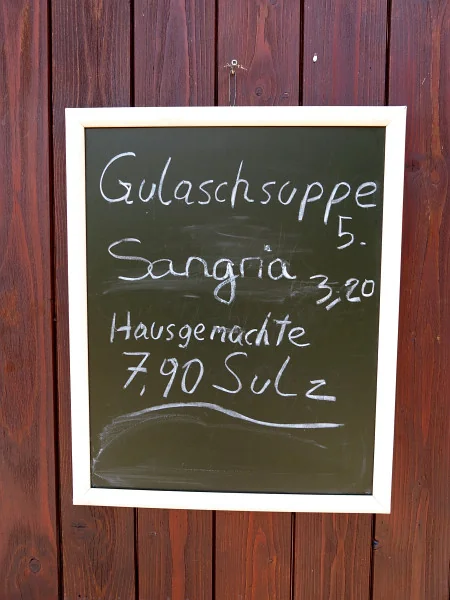 Gulaschsuppe
5.
Sangria
3,20
Hausgemachte
7,90 Sulz